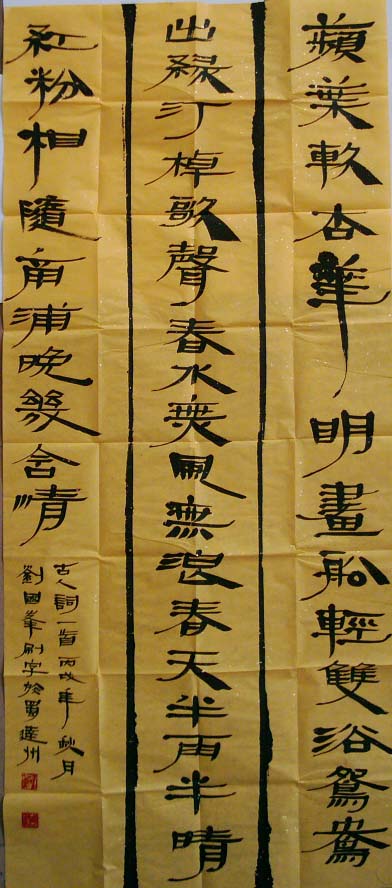 蘋葉軟杏華明畫船輕雙浴鴛鴦
出綠汀棹歌聲春水無風無浪春天半雨半晴
紅粉相隨南浦晚幾含情
古人詞一首丙戌年秋月
劉國峯刷字於蜀達州